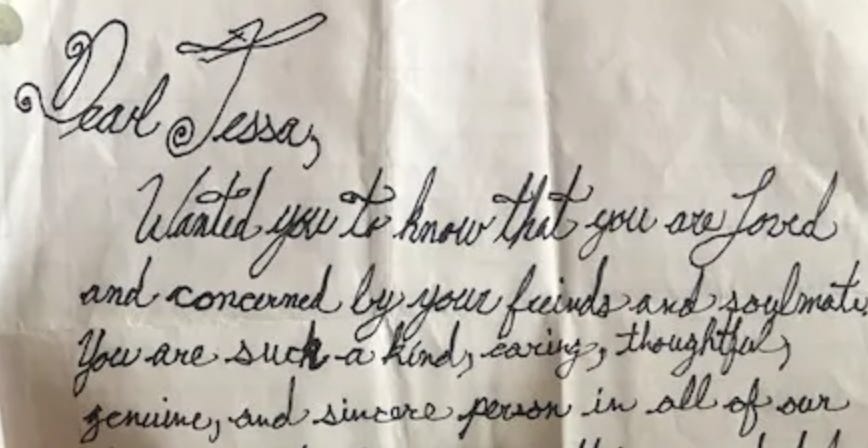 Dear Tessa,
Wanted you to know that you are loved
and concerned by your freinds and soylmate
You are such a kind, caring, thoughtful,
genuine, and sincere person in all of our